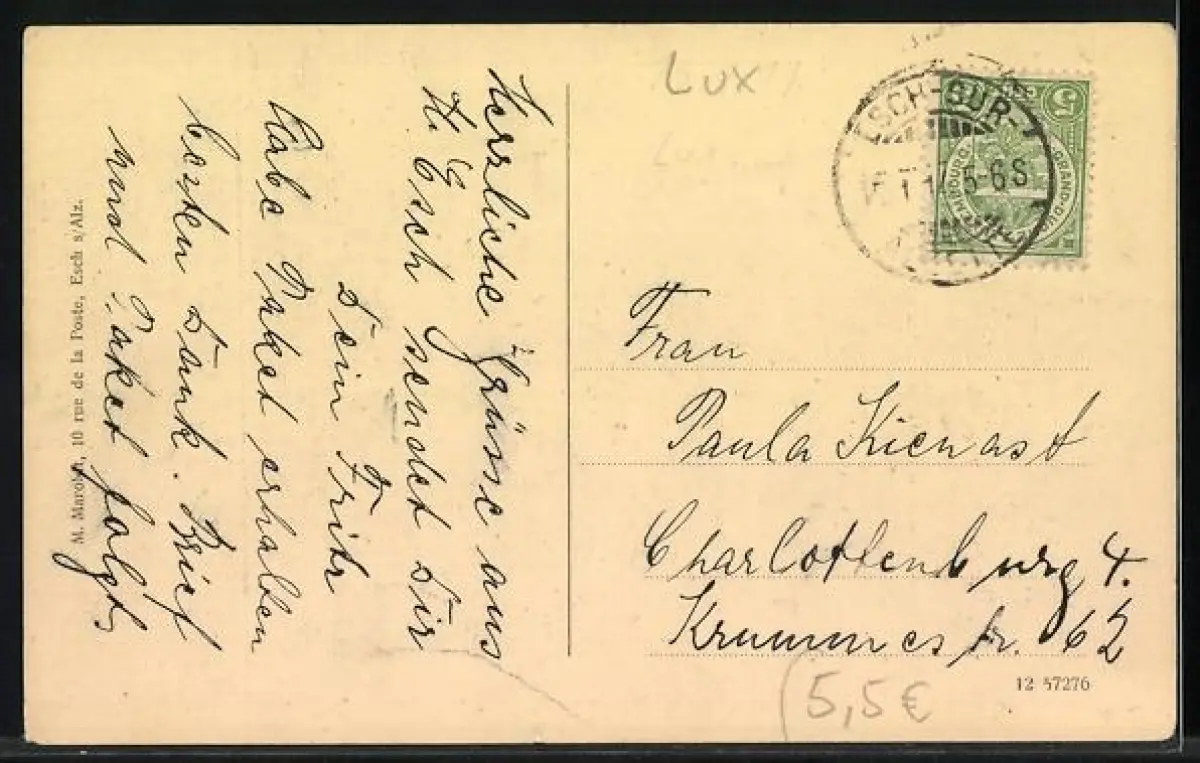 Herzliche Grüsse aus
Esch sendet Dir
Dein Fritz
Habe Paket erhalten
besten Dank. Brief
und Paket folgt
M. Marot, 10 rue de la Poste, Esch s/Alz.
Lux
ESCH-SUR-
5-6S
GRAND-DU
5
Frau
Paula Kienast
Charlottenburg 4.
Krummestr. 62
12 57276
5,5€